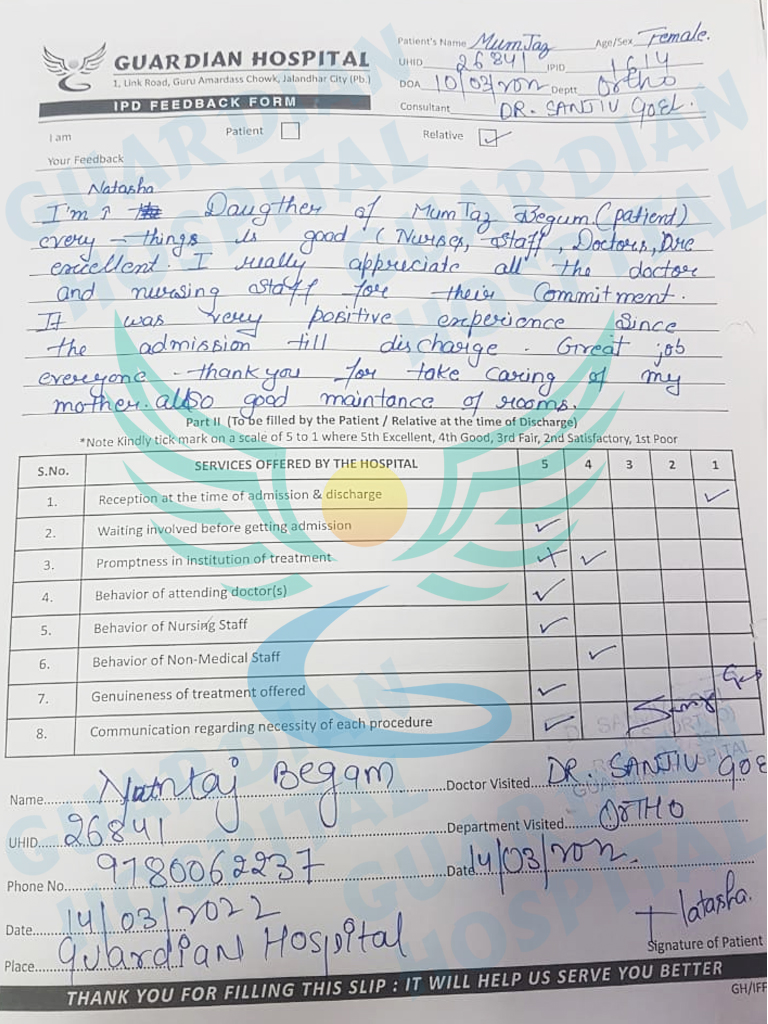 GUARDIAN HOSPITAL
1, Link Road, Guru Amardass Chowk, Jalandhar City (Pb.)
IPD FEEDBACK FORM
Patient's Name MumTaz Age/Sex Female.
UHID 26841 IPID 1614
DOA 10/03/2022 Deptt Ortho
Consultant DR. SANJIV GOEL.
I am Patient Relative ✓
Your Feedback
Natasha
I'm Daugther of MumTaz Begum (patient)
every things is good (Nurses, staff, Doctors, are
excellent. I really appreciate all the doctor
and nursing staff for their Commitment.
It was very positive experience Since
the admission till discharge. Great job
everyone. thank you for take caring of my
mother. allso good maintance of rooms.
Part II (To be filled by the Patient / Relative at the time of Discharge)
*Note Kindly tick mark on a scale of 5 to 1 where 5th Excellent, 4th Good, 3rd Fair, 2nd Satisfactory, 1st Poor
S.No. SERVICES OFFERED BY THE HOSPITAL 5 4 3 2 1
1. Reception at the time of admission & discharge ✓
2. Waiting involved before getting admission ✓
3. Promptness in institution of treatment ✓
4. Behavior of attending doctor(s) ✓
5. Behavior of Nursing Staff ✓
6. Behavior of Non-Medical Staff ✓
7. Genuineness of treatment offered ✓
8. Communication regarding necessity of each procedure ✓
Name Begam Doctor Visited DR. SANJIV GOE
UHID 26841 Department Visited ORTHO
Phone No. 9780062237 Date 14/03/2022
Date 14/03/2022 Natasha.
Place Guardian Hospital Signature of Patient
THANK YOU FOR FILLING THIS SLIP : IT WILL HELP US SERVE YOU BETTER
GH/IFF
GUARDIAN HOSPITAL